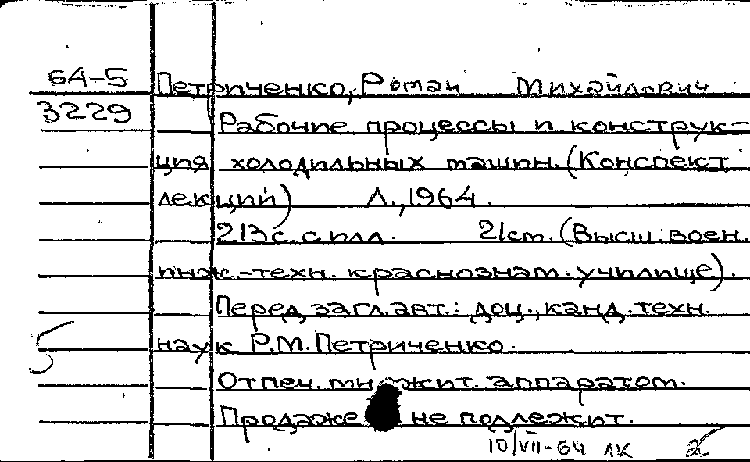 64-5 Петриченко, Роман Михайлович
3229 Рабочие процессы и конструк-
ция холодильных машин. (Конспект
лекций) Л., 1964.
213с. с илл. 21см. (Высш. воен.
инж.-техн. краснознам. училище).
Перед загл. авт.: доц., канд. техн.
5 наук Р.М. Петриченко.
Отпеч. множит. аппаратом.
Продаже не подлежит.
10/VII-64 ЛК